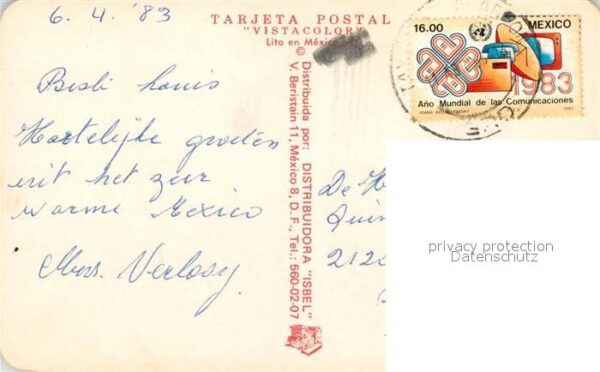 6. 4. '83
TARJETA POSTAL
"VISTACOLOR"
Lito en México
Hartelijke groeten
uit het zeer
warme Mexico
© Distribuida por: DISTRIBUIDORA "ISBEL"
V. Beristain 11, México 8, D. F., Tel.: 560-02-07
16.00
MEXICO
1983
Año Mundial de las Comunicaciones
De H
212
privacy protection
Datenschutz